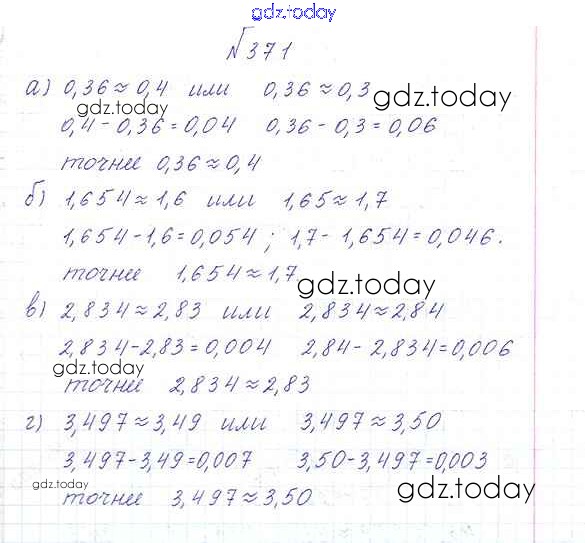 gdz.today
№371
а) 0,36≈0,4 или 0,36≈0,3 gdz.today
gdz.today
0,4-0,36=0,04 0,36-0,3=0,06
точнее 0,36≈0,4
б) 1,654≈1,6 или 1,65≈1,7
1,654-1,6=0,054; 1,7-1,654=0,046.
точнее 1,654≈1,7
gdz.today
в) 2,834≈2,83 или 2,834≈2,84
2,834-2,83=0,004 2,84-2,834=0,006
gdz.today
точнее 2,834≈2,83
г) 3,497≈3,49 или 3,497≈3,50
3,497-3,49=0,007 3,50-3,497=0,003
gdz.today
gdz.today
точнее 3,497≈3,50